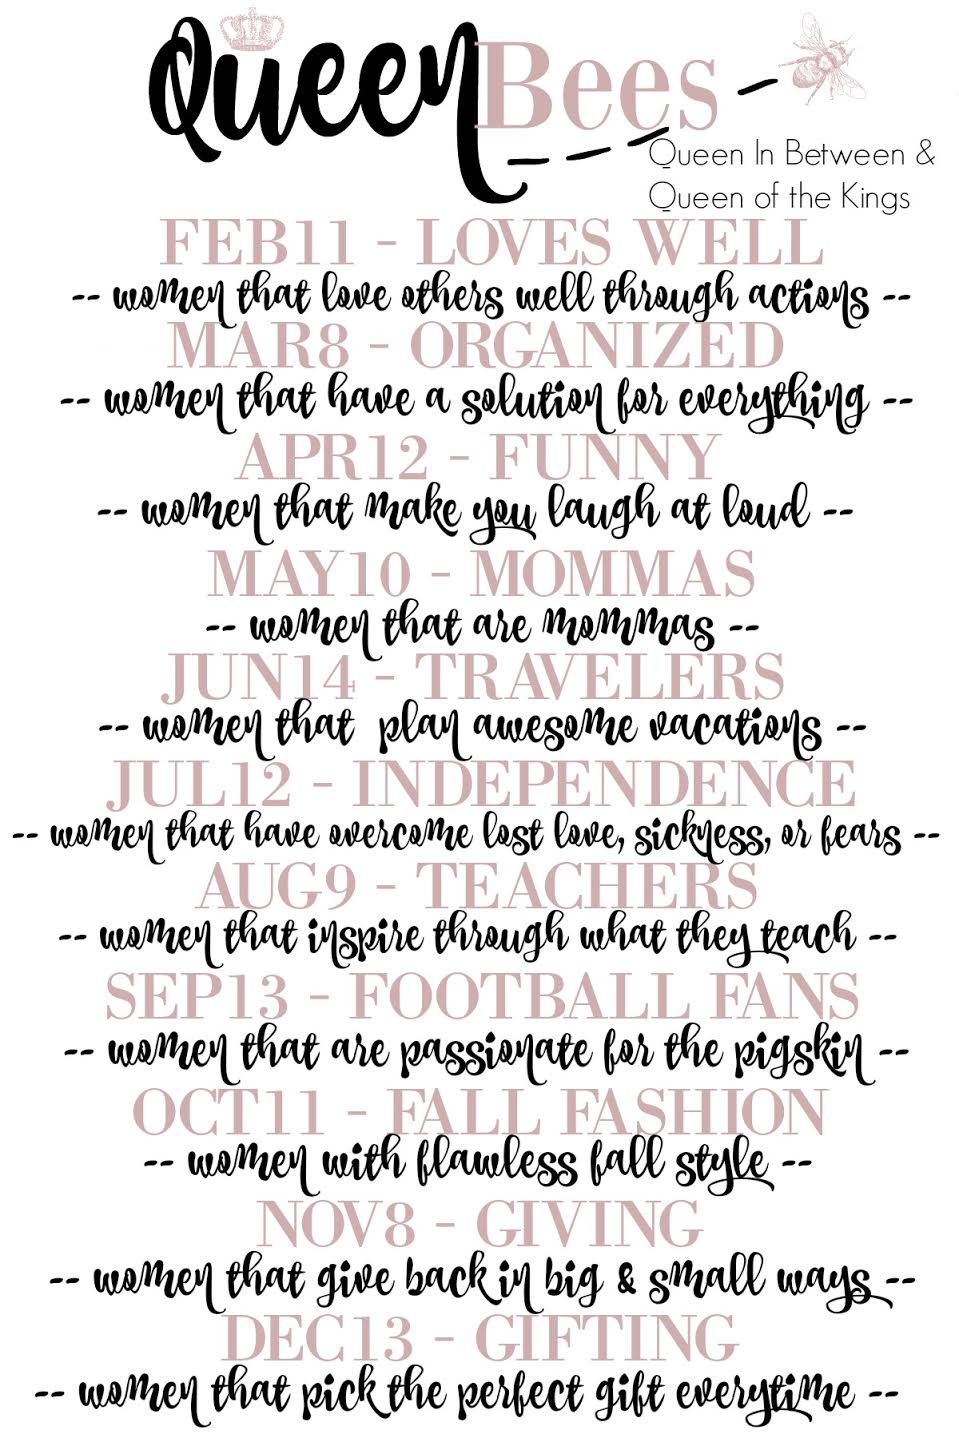 Queen Bees
Queen In Between &
Queen of the Kings
FEB11 - LOVES WELL
-- women that love others well through actions --
MAR8 - ORGANIZED
-- women that have a solution for everything --
APR12 - FUNNY
-- women that make you laugh at loud --
MAY10 - MOMMAS
-- women that are mommas --
JUN14 - TRAVELERS
-- women that plan awesome vacations --
JUL12 - INDEPENDENCE
-- women that have overcome lost love, sickness, or fears --
AUG9 - TEACHERS
-- women that inspire through what they teach --
SEP13 - FOOTBALL FANS
-- women that are passionate for the pigskin --
OCT11 - FALL FASHION
-- women with flawless fall style --
NOV8 - GIVING
-- women that give back in big & small ways --
DEC13 - GIFTING
-- women that pick the perfect gift everytime --